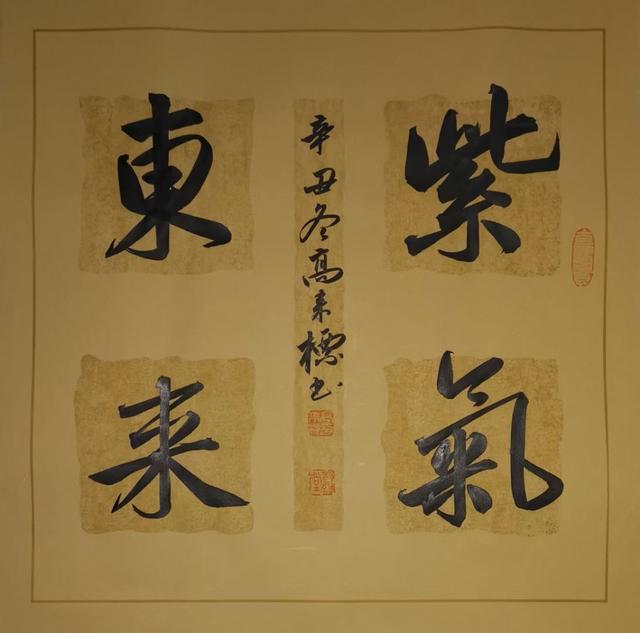 紫氣
東来
辛丑冬高来標书